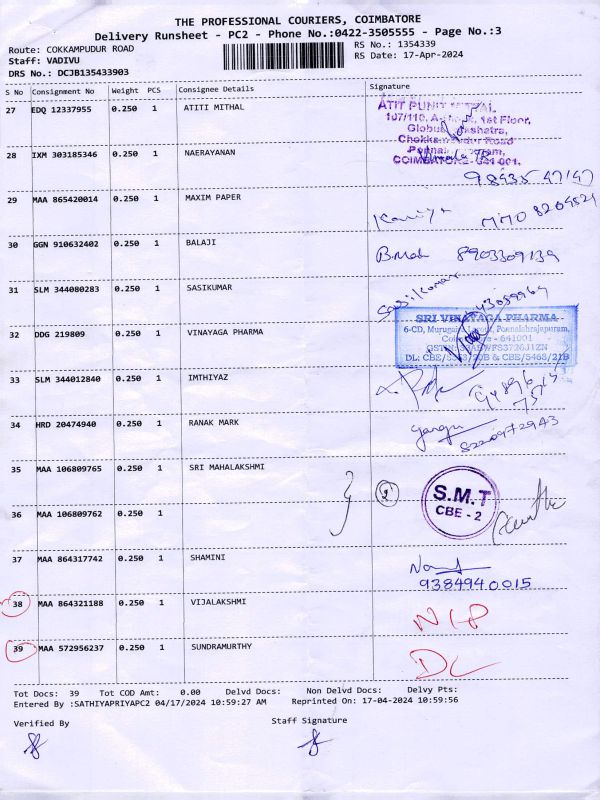 THE PROFESSIONAL COURIERS, COIMBATORE
Delivery Runsheet - PC2 - Phone No.:0422-3505555 - Page No.:3
Route: COKKAMPUDUR ROAD
RS No.: 1354339
Staff: VADIVU
RS Date: 17-Apr-2024
DRS No.: DCJB135433903
S No Consignment No Weight PCS Consignee Details Signature
27 EDQ 12337955 0.250 1 ATITI MITHAL
ATIT PUNIT MITHAL
107/110, 1st Floor,
28 IXM 303185346 0.250 1 NAERAYANAN
COIMBATORE - 641 001.
29 MAA 865420014 0.250 1 MAXIM PAPER
30 GGN 910632402 0.250 1 BALAJI
8903309139
31 SLM 344080283 0.250 1 SASIKUMAR
Sasikumar
SRI VINAYAGA PHARMA
6-CD, Ponnaiahrajapuram,
32 DDG 219809 0.250 1 VINAYAGA PHARMA
641001
33 SLM 344012840 0.250 1 IMTHIYAZ
34 HRD 20474940 0.250 1 RANAK MARK
8220972943
35 MAA 106809765 0.250 1 SRI MAHALAKSHMI
2
S.M.T
CBE - 2
36 MAA 106809762 0.250 1
37 MAA 864317742 0.250 1 SHAMINI
9384940015
38 MAA 864321188 0.250 1 VIJALAKSHMI
39 MAA 572956237 0.250 1 SUNDRAMURTHY
DL
Tot Docs: 39 Tot COD Amt: 0.00 Delvd Docs: Non Delvd Docs: Delvy Pts:
Entered By :SATHIYAPRIYAPC2 04/17/2024 10:59:27 AM Reprinted On: 17-04-2024 10:59:56
Verified By
Staff Signature